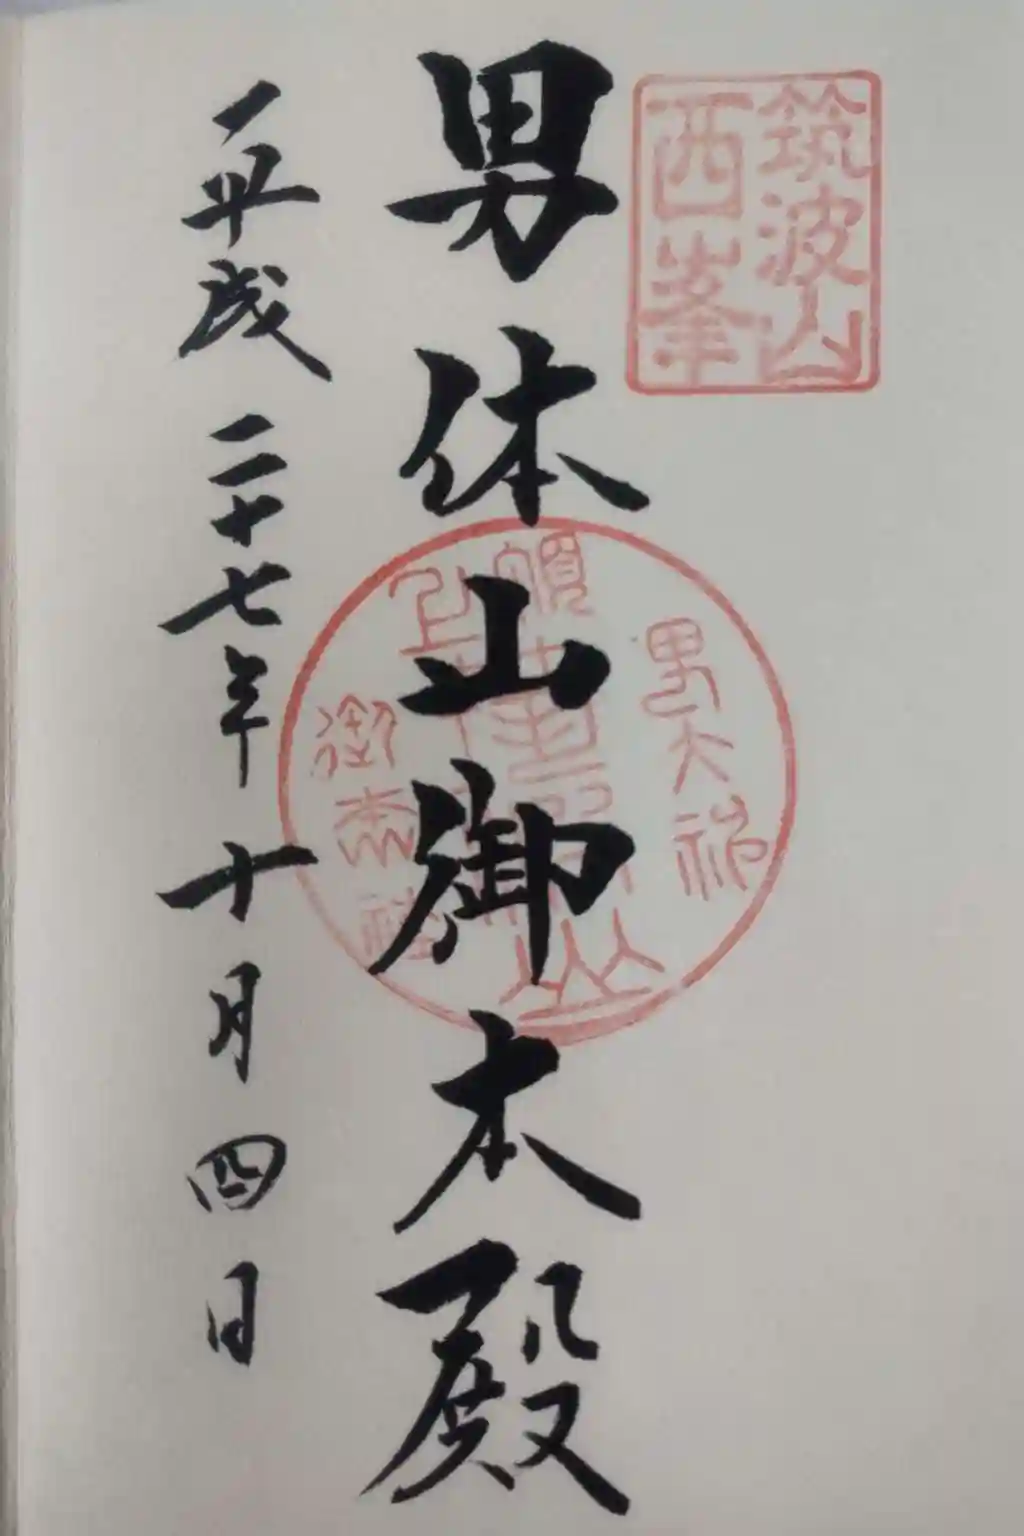 筑波山
西峯
男体山御本殿
平成二十七年十月四日